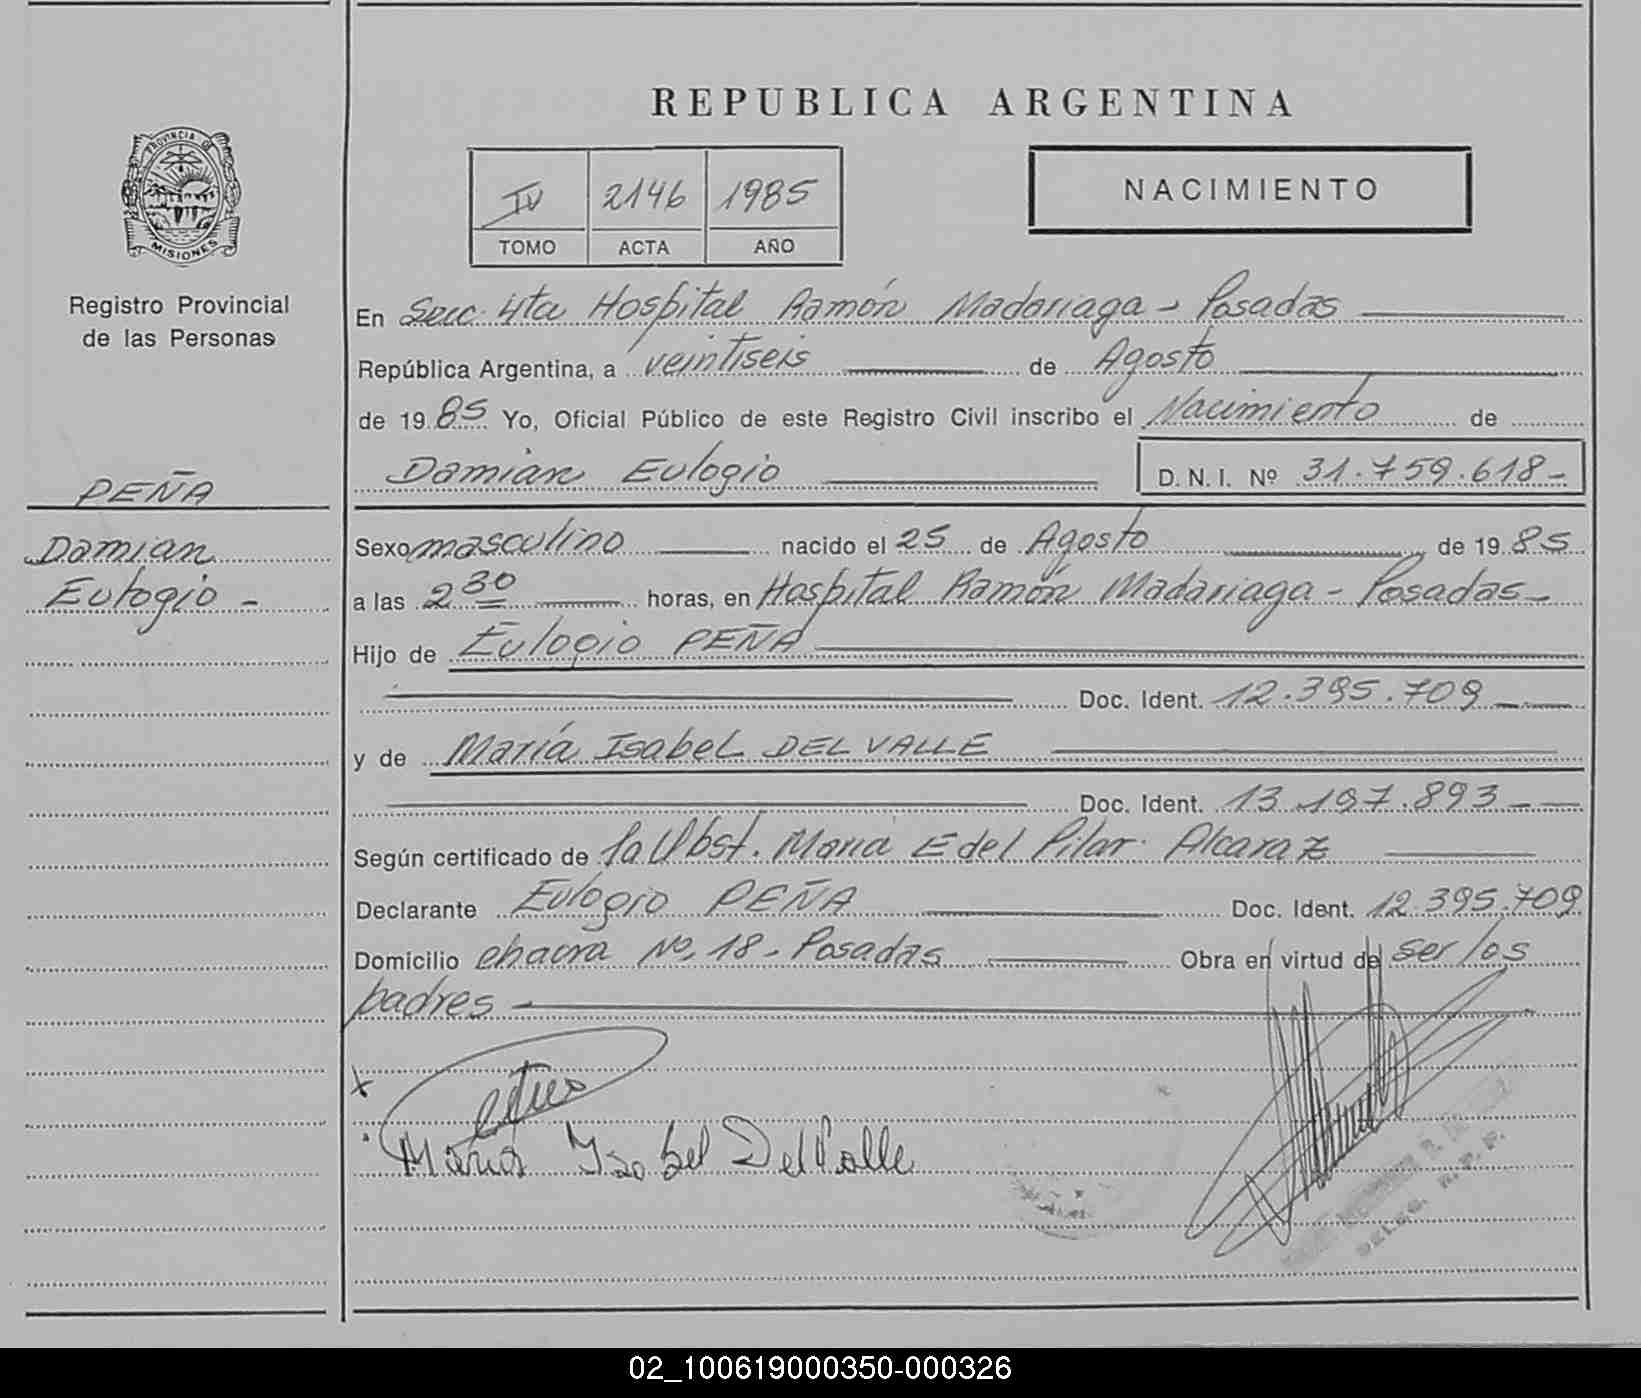 PROVINCIA DE
MISIONES
Registro Provincial
de las Personas
PEÑA
Damian
Eulogio -
REPUBLICA ARGENTINA
IV 2146 1985
TOMO ACTA AÑO
NACIMIENTO
En Secc. 4ta Hospital Ramón Madariaga - Posadas
República Argentina, a veintiseis de Agosto
de 1985 Yo, Oficial Público de este Registro Civil inscribo el Nacimiento de
Damian Eulogio D. N. I. Nº 31.759.618-
Sexo masculino nacido el 25 de Agosto de 1985
a las 2 30 horas, en Hospital Ramón Madariaga - Posadas-
Hijo de Eulogio PEÑA
Doc. Ident. 12.395.709
y de María Isabel DEL VALLE
Doc. Ident. 13.197.893
Según certificado de la Obst. María E del Pilar Alcaraz
Declarante Eulogio PEÑA Doc. Ident. 12.395.709
Domicilio chacra Nº 18 - Posadas Obra en virtud de ser los
padres
x
Maria Isabel Del Valle
DELEG. R. P. P.
02_100619000350-000326